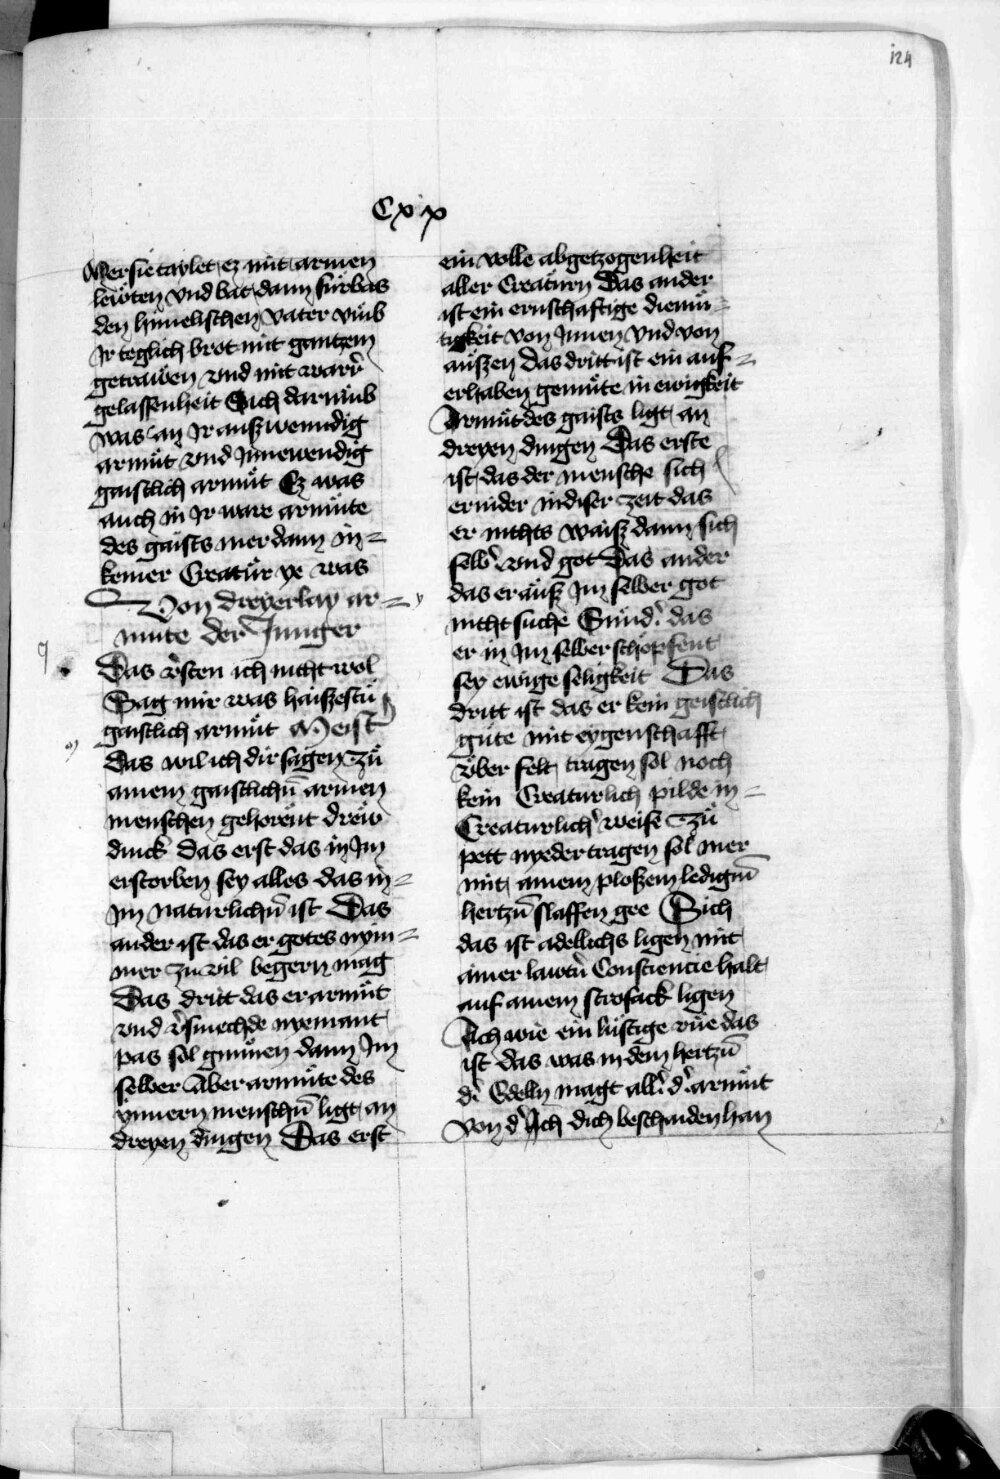 124
Cxx
Mer sie taylet ez mit armen
lewten vnd bat dann fürbas
den himelischen vater vmb
Ir teglich brot mit gantzem
getrawen vnd mit warer̄
gelassenheit Sich darumb
was an Ir auszwenndig
armut vnd Innewendig
gaistlich armut Ez was
auch in Ir ware armute
des gaists mer dann in=
keiner Creatur ye was
Von dreyerlay ar=
mute der Junger
Das v̓sten ich nicht wol
Sag mir was haiszestu
gaistlich armut Meist̓
Das wil ich dir sagen Zu
ainem gaistlichn̄ armen
menschen gehorent drew
dinck Das erst das in Im
erstorben sey alles das in=
Im naturlichn̄ ist Das
ander ist das er gotes nym=
mer zu vil begern mag
Das dritt das er armut
vnd v̓smechde nyemant
pas sol gunnen dann Im
selber Aber armute des
ynnern menschn̄ ligt an
dreyen dingen Das erst
ein volle abgetzogenheit
aller Creaturn Das ander
ist ein ernschaftige diemu=
tigkeit von Innen vnd von
auszen das dritt ist ein auf=
erhaben gemute in ewigkeit
Armut des gaists ligt an
dreyen dingen Das erste
ist das der mensche sich
ernider in diser zeit das
er nichts waisz dann sich
selb̓ vnd got Das ander
das er ausz Im selber got
nicht suche Sund̓ das
er in Im selber schopfent
sey ewige seligkeit Das
dritt ist das er kein geistlich
gute mit eygenschafft
vber felt tragen sol noch
kein Creaturlich pilde in=
Creaturlich̓ weise Zu
pett nyeder tragen sol mer
mit ainem ploszem ledigm̄
hertzn̄ slaffen gee Sich
das ist adellichs ligen mit
ainer lawtn̄ Consciencie halt
auf ainem strosack ligen
Ach wie ein lustige rue das
ist das was in dem hertzn̄
d̓ Edeln magt all̓ d̓ armut
von d̓ Ich dich beschaiden han